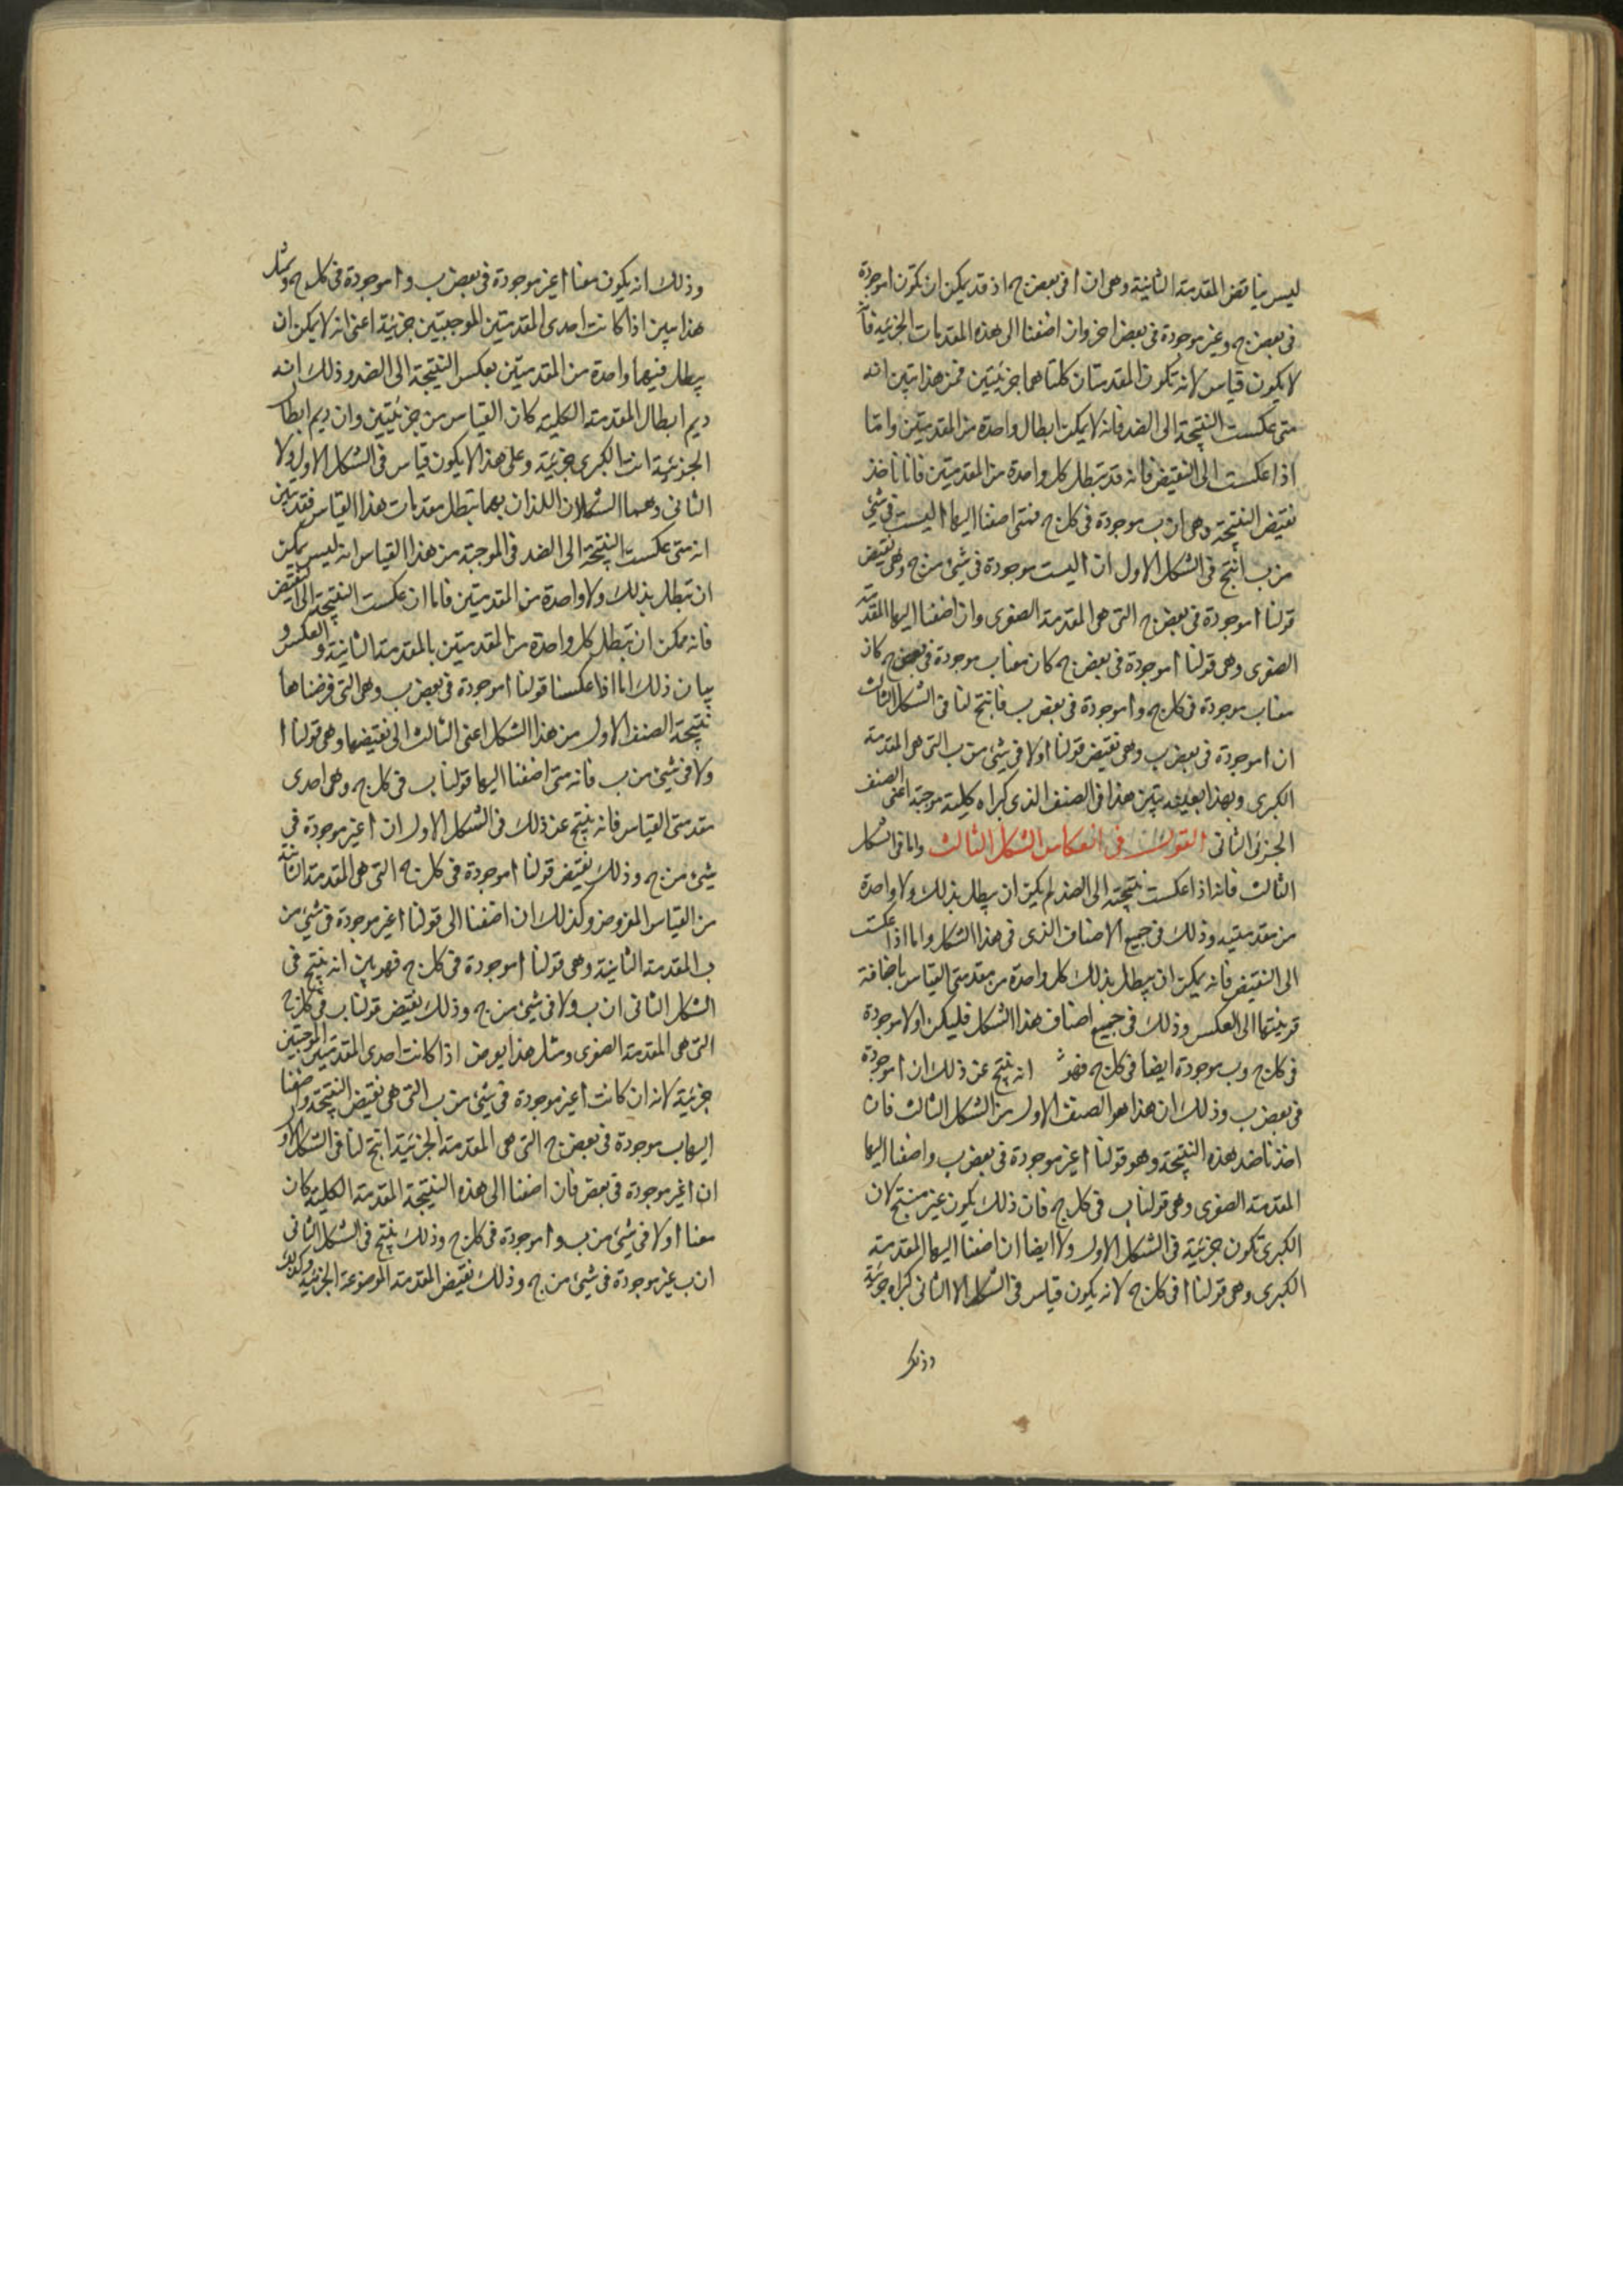 ليس يناقض المقدمة الثانية وهى ان ا فى بعض ج اذ قد يمكن ان تكون ا موجودة
فى بعض ج وغير موجودة فى بعض اخر وان اضفنا الى هذه المقدمات الجزئية فانه
لا يكون قياس لانه تكون المقدمتان كلتاهما جزئيتين فمن هذا تبين انه
متى عكست النتيجة الى الضد فانه لا يمكن ابطال واحدة من المقدمتين واما
اذا عكست الى النقيض فانه قد تبطل كل واحدة من المقدمتين فانا ناخذ
نقيض النتيجة وهى ان ب موجودة فى كل ج فمتى اضفنا اليها ا ليست فى شئ
من ب انتج فى الشكل الاول ان ا ليست موجودة فى شئ من ج وهى نقيض
قولنا ا موجودة فى بعض ج التى هى المقدمة الصغرى وان اضفنا اليها المقدمة
الصغرى وهى قولنا ا موجودة فى بعض ج كان معنا ب موجودة فى بعض ج كان
معنا ب موجودة فى كل ج وا موجودة فى بعض ب فانتج لنا فى الشكل الثالث
ان ا موجودة فى بعض ب وهى نقيض قولنا ا ولا فى شئ من ب التى هى المقدمة
الكبرى وبهذا بعينه يتبين هذا فى الصنف الذى كبراه كلية موجبة اعنى الصنف
الجزئى الثانى القول فى انعكاس الشكل الثالث واما فى الشكل
الثالث فانه اذا عكست نتيجته الى الضد لم يكن ان يبطل بذلك ولا واحدة
من مقدمتيه وذلك فى جميع الاصناف الذى فى هذا الشكل واما اذا عكست
الى النقيض فانه يمكن ان يبطل بذلك كل واحدة من مقدمتى القياس باضافة
قرينتها الى العكس وذلك فى جميع اصناف هذا الشكل فليكن اولا موجودة
فى كل ج وب موجودة ايضا فى كل ج فهو انه ينتج عن ذلك ان ا موجودة
فى بعض ب وذلك ان هذا هو الصنف الاول من الشكل الثالث فان
اخذنا ضد هذه النتيجة وهو قولنا ا غير موجودة فى بعض ب واضفنا اليها
المقدمة الصغرى وهى قولنا ب فى كل ج فان ذلك يكون غير منتج لان
الكبرى تكون جزئية فى الشكل الاول ولا ايضا ان اضفنا اليها المقدمة
الكبرى وهى قولنا ا فى كل ج لانه يكون قياس فى الشكل الا الثانى كبراه جزئية
وذلك
وذلك انه يكون معنا ا غير موجودة فى بعض ب وا موجودة فى كل ج ومثل
هذا يبين اذا كانت احدى المقدمتين الموجبتين جزئية اعنى انه لا يمكن ان
يبطل فيهما واحدة من المقدمتين بعكس النتيجة الى الضد وذلك انه
ديم ابطال المقدمة الكلية كان القياس من جزئيتين وان ديم ابطال
الجزئية انت الكبرى جزئية وعلى هذا لا يكون قياس فى الشكل الاول ولا
الثانى وهما الشكلان اللذان بهما تبطل مقدمات هذا القياس فقد تبين
انه متى عكست النتيجة الى الضد فى الموجبة من هذا القياس انه ليس يمكن
ان تبطل بذلك ولا واحدة من المقدمتين فاما ان عكست النتيجة الى النقيض
فانه ممكن ان تبطل كل واحدة من المقدمتين بالمقدمة الثانية والعكس و
بيان ذلك انا اذا عكسنا قولنا ا موجودة فى بعض ب وهى التى فرضناها
نتيجة الصنف الاول من هذا الشكل اعنى الثالث الى نقيضها وهى قولنا ا
ولا فى شئ من ب فانه متى اضفنا اليها قولنا ب فى كل ج وهى احدى
مقدمتى القياس فانه ينتج عن ذلك فى الشكل الاول ان ا غير موجودة فى
شئ من ج وذلك نقيض قولنا ا موجودة فى كل ج التى هى المقدمة الثانية
من القياس المفروض وكذلك ان اضفنا الى قولنا ا غير موجودة فى شئ من
ب المقدمة الثانية وهى قولنا ا موجودة فى كل ج فهو بين انه ينتج فى
الشكل الثانى ان ب ولا فى شئ من ج وذلك نقيض قولنا ب فى كل ج
التى هى المقدمة الصغرى ومثل هذا يعرض اذا كانت احدى المقدمتين الموجبتين
جزئية لانه ان كانت ا غير موجودة فى شئ من ب التى هى نقيض النتيجة واضفنا
اليها ب موجودة فى بعض ج التى هى المقدمة الجزئية انتج لنا فى الشكل الاول
ان ا غير موجودة فى بعض فان اضفنا الى هذه النتيجة المقدمة الكلية كان
معنا ا ولا فى شئ من ب وا موجودة فى كل ج وذلك ينتج فى الشكل الثانى
ان ب غير موجودة فى شئ من ج وذلك نقيض المقدمة الموضوعة الجزئية وكذلك